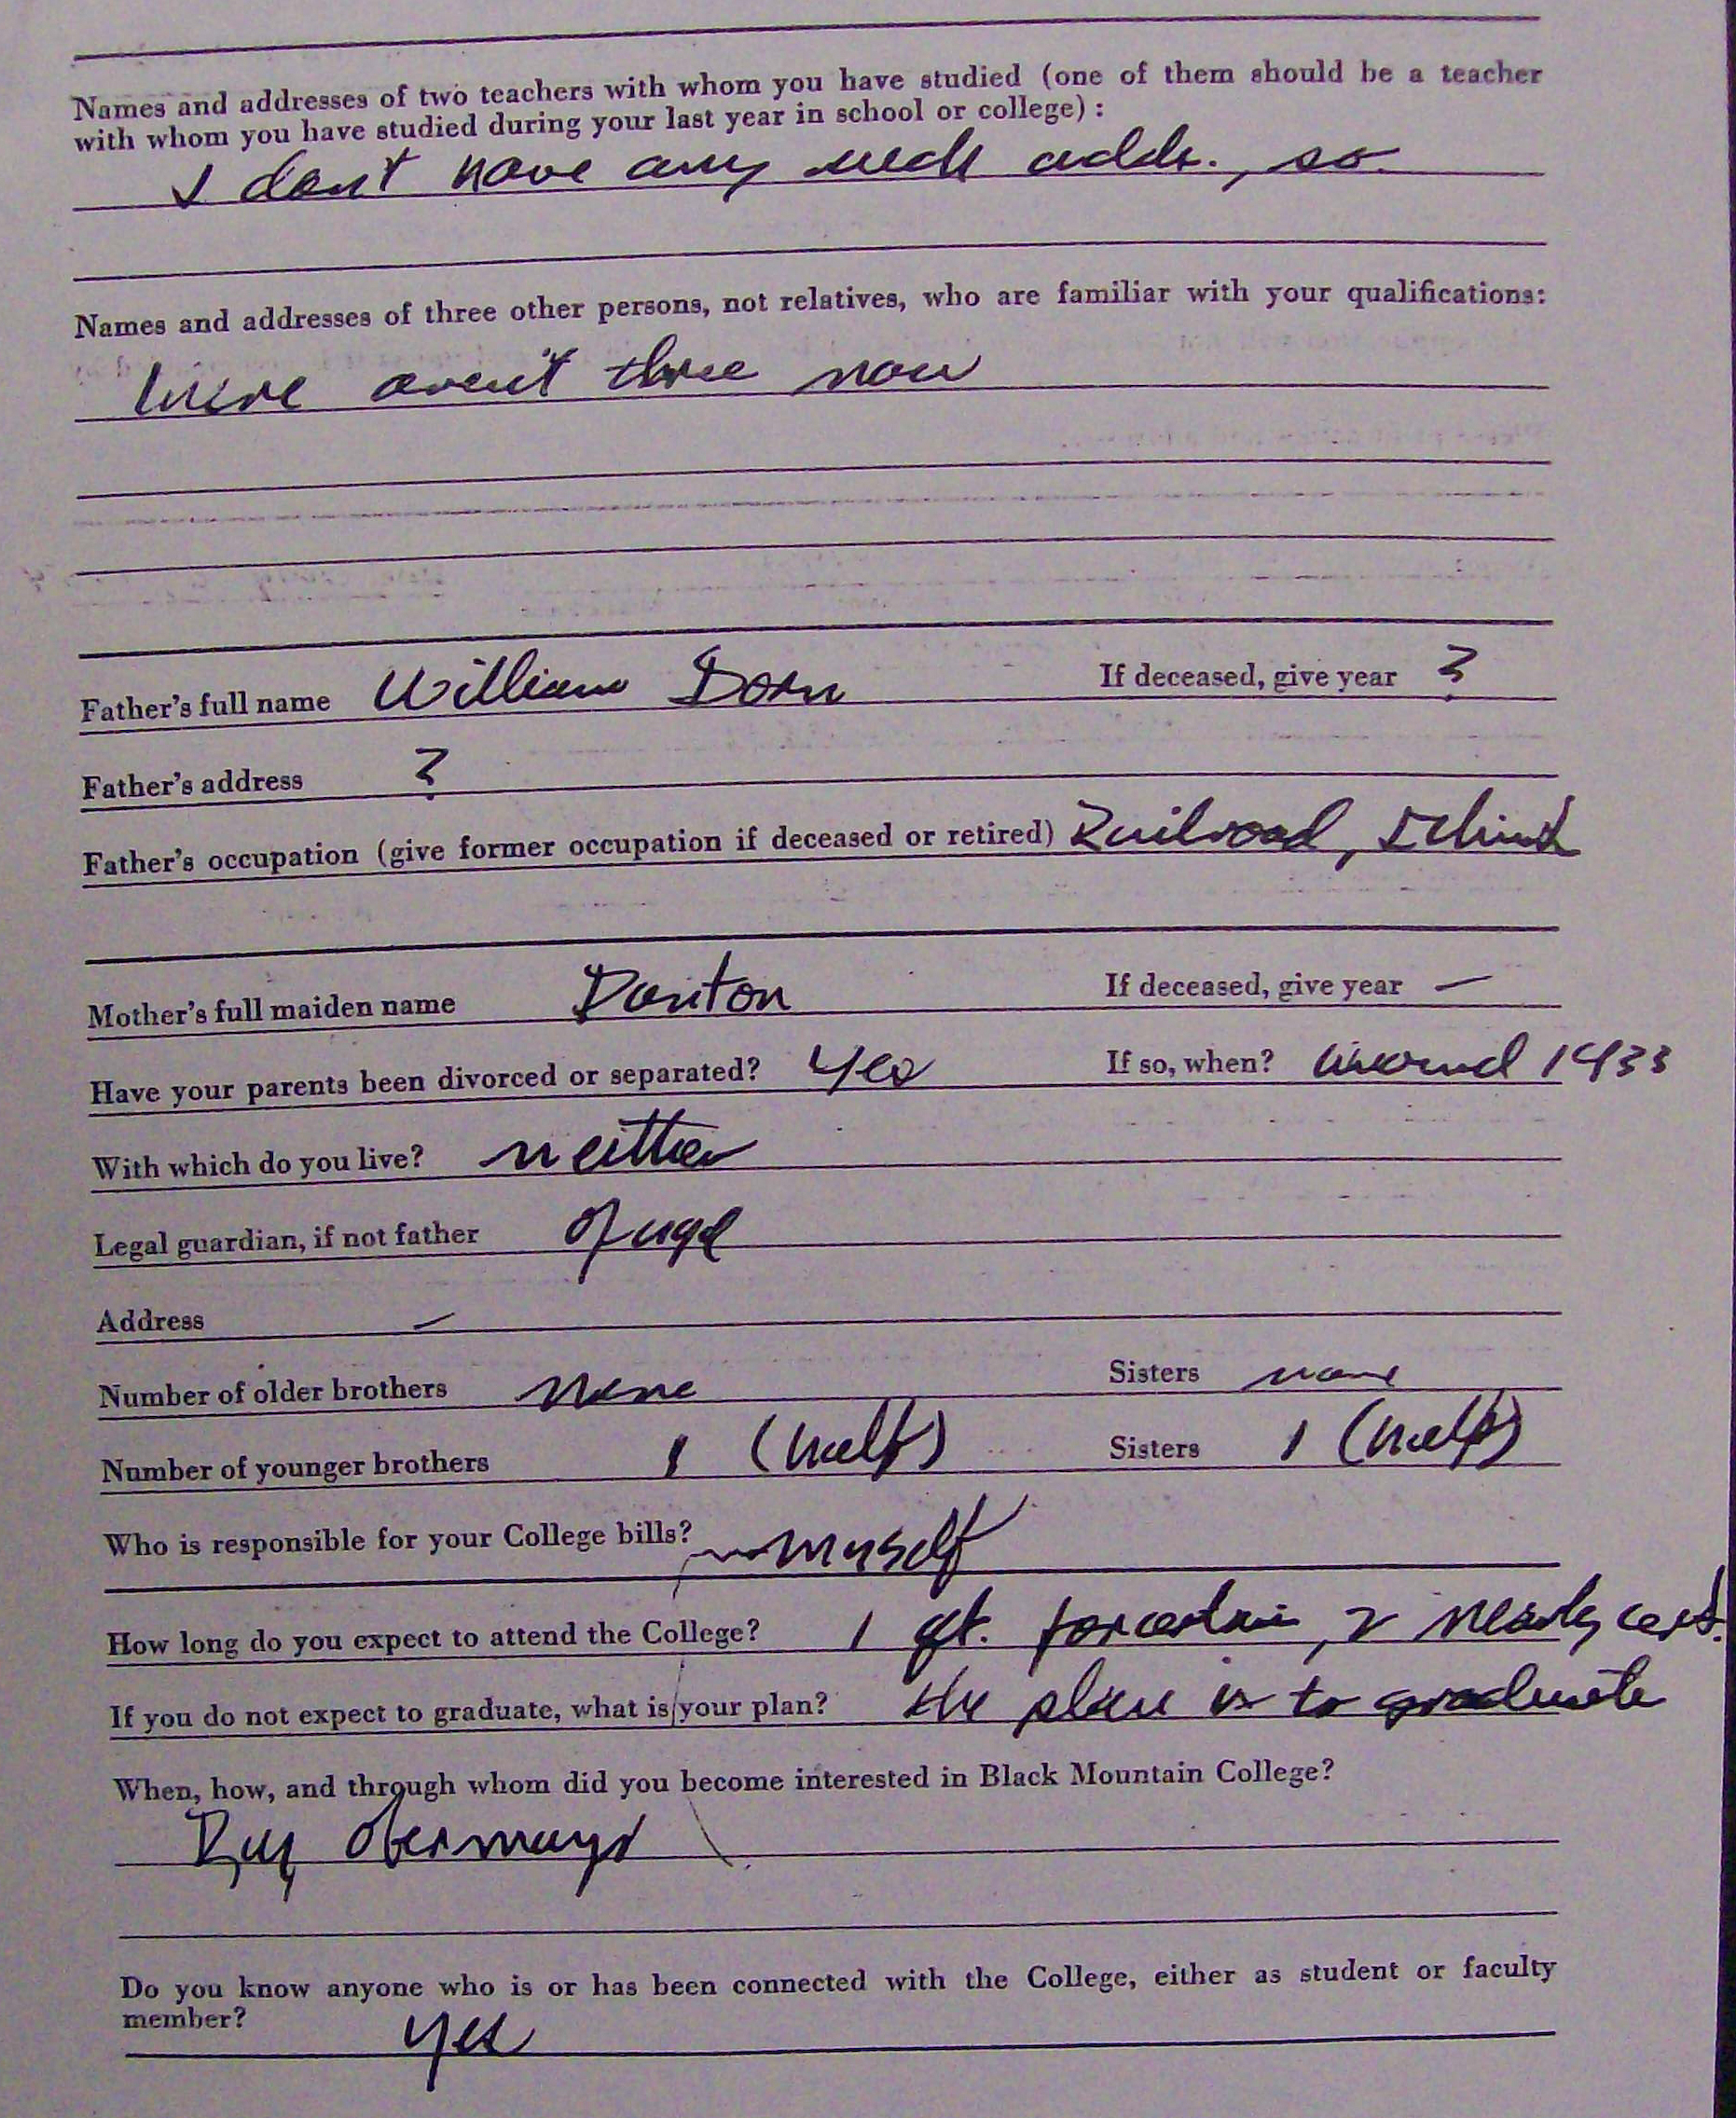 Names and addresses of two teachers with whom you have studied (one of them should be a teacher
with whom you have studied during your last year in school or college) :
I don't have any such adds., so
Names and addresses of three other persons, not relatives, who are familiar with your qualifications:
there aren't three now
Father's full name William Dorn If deceased, give year ?
Father's address ?
Father's occupation (give former occupation if deceased or retired) Railroad,
Mother's full maiden name Ponton If deceased, give year —
Have your parents been divorced or separated? Yes If so, when? around 1933
With which do you live? neither
Legal guardian, if not father of age
Address —
Number of older brothers none Sisters none
Number of younger brothers 1 (half) Sisters 1 (half)
Who is responsible for your College bills? myself
How long do you expect to attend the College? 1 qt. for certain, 2 nearly cert.
If you do not expect to graduate, what is your plan? the plan is to graduate
When, how, and through whom did you become interested in Black Mountain College?
Ray Obermayr
Do you know anyone who is or has been connected with the College, either as student or faculty
member? yes